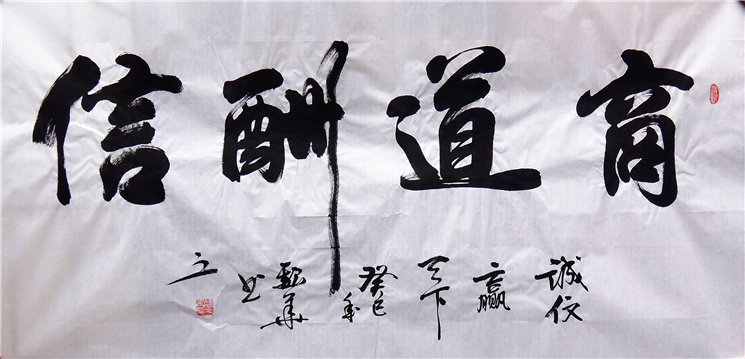 商道酬信
誠信赢天下癸巳年華书之